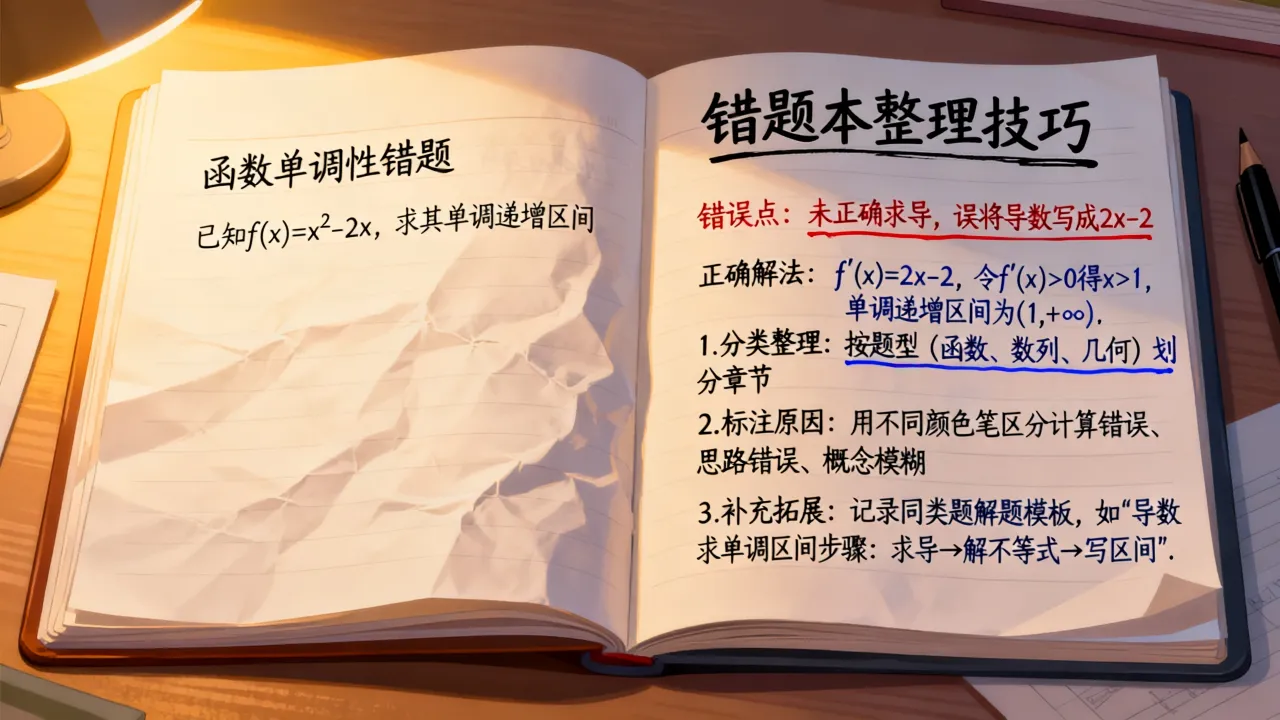 函数单调性错题
已知f(x)=x²-2x，求其单调递增区间
错题本整理技巧
错误点：未正确求导，误将导数写成2x-2
正确解法：f'(x)=2x-2，令f'(x)>0得x>1，
单调递增区间为(1,+∞).
1.分类整理：按题型（函数、数列、几何）划
分章节
2.标注原因：用不同颜色笔区分计算错误、
思路错误、概念模糊
3.补充拓展：记录同类题解题模板，如“导数
求单调区间步骤：求导→解不等式→写区间”.